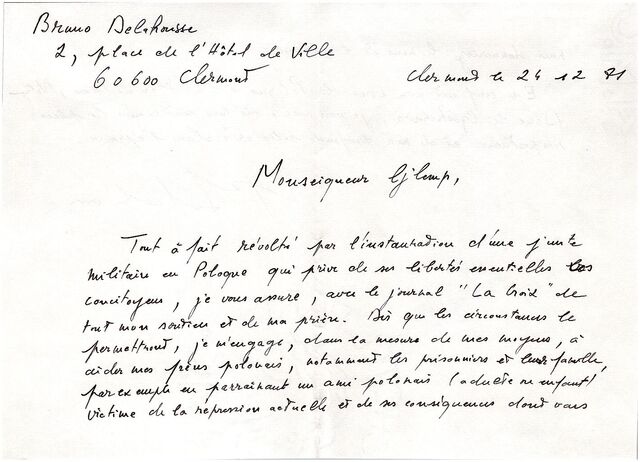 Bruno Delahousse
2, place de l'Hôtel de Ville
60600 Clermont
Clermont le 24 12 81
Monseigneur Gjlemp,
Tout à fait révolté par l'instauration d'une junte
militaire en Pologne qui prive de ses libertés essentielles ses
concitoyens, je vous assure, avec le journal "La Croix" de
tout mon soutien et de ma prière. Dès que les circonstances le
permettront, je m'engage, dans la mesure de mes moyens, à
aider mes frères polonais, notamment les prisonniers et leur famille,
par exemple en parrainant un ami polonais (adulte ou enfant)
victime de la répression actuelle et de ses conséquences dont vous